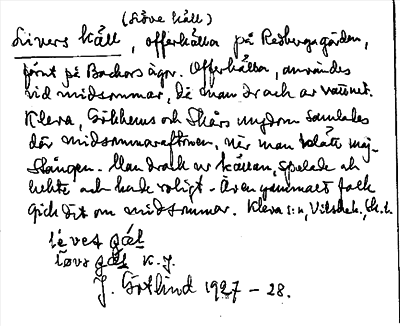 (Löve käll)
Livers käll, offerkälla på Redbergagården,
förut på Backors ägor. Offerkälla, användes
vid midsommar, då man drack av vattnet.
Kleva, Götlhems och Skärs ungdom samlades
där midsommaraftonen, när man
stången. Man drack ur källan, spelade och
lekte och hade roligt. Även gammalt folk
gick dit om midsommar. Kleva s:n, Vilske h.
K. J.
J. Götlind 1927 - 28.